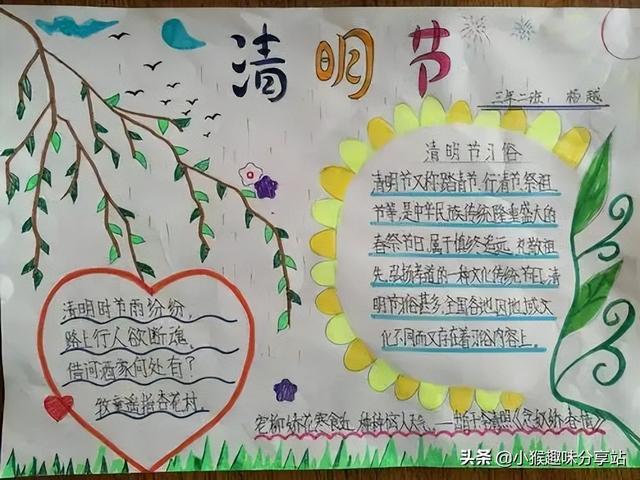 清明节
三年二班：杨越
清明节习俗
清明节又称踏青节、行清节、祭祖
节等，是中华民族传统隆重盛大的
春祭节日，属于慎终追远、礼敬祖
先、弘扬孝道的一种文化传统节日。清
明节习俗甚多，全国各地因地域文
化不同而又存在着习俗内容上
清明时节雨纷纷，
路上行人欲断魂，
借问酒家何处有？
牧童遥指杏花村。
宠柳娇花寒食近，种种恼人天气。——出于李清照《念奴娇·春情》
头条 @小猴趣味分享站